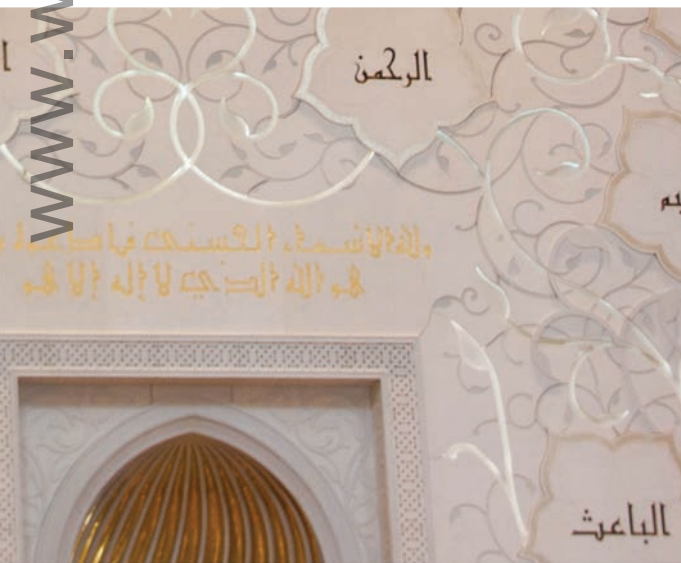 الرحمن
ولله الأسماء الحسنى فادعوه
هو الله الذي لا إله إلا هو
الباعث
www.